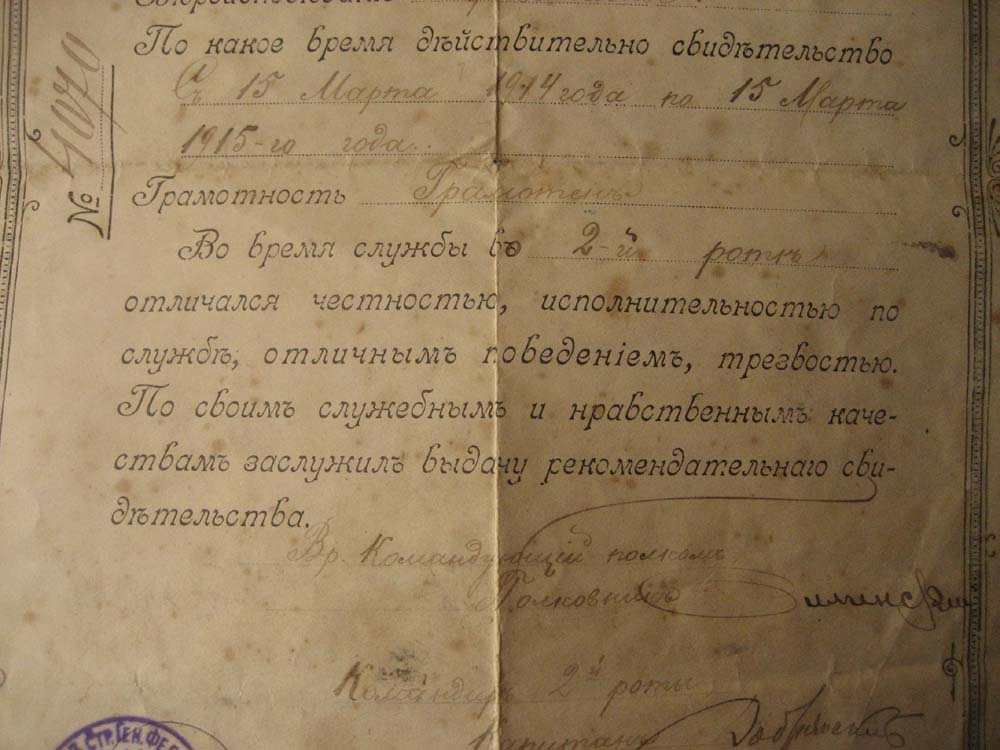 По какое время дѣйствительно свидѣтельство
Съ 15 Марта 1914 года по 15 Марта
1915-го года.
№ 4070
Грамотность Грамотенъ
Во время службы въ 2-й ротѣ
отличался честностью, исполнительностью по
службѣ, отличнымъ поведеніемъ, трезвостью.
По своимъ служебнымъ и нравственнымъ каче-
ствамъ заслужилъ выдачу рекомендательнаго сви-
дѣтельства.
Вр. Командующій полкомъ
Полковникъ
Командиръ 2й роты
Капитанъ
СТР. ГЕН. ФЕ